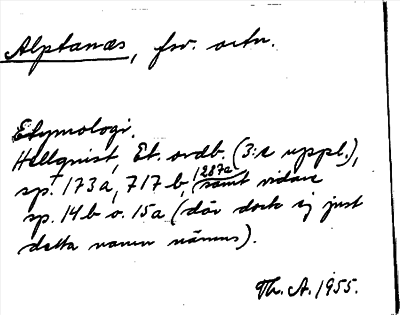 Alptanäs, fsv. ortn.
Etymologi.
Hellquist, Et. ordb. (3:e uppl.),
sp. 173a, 717b, 1287a (samt vidare
sp. 14b o. 15a (där dock ej just
detta namn nämns).
Th. A. 1955.